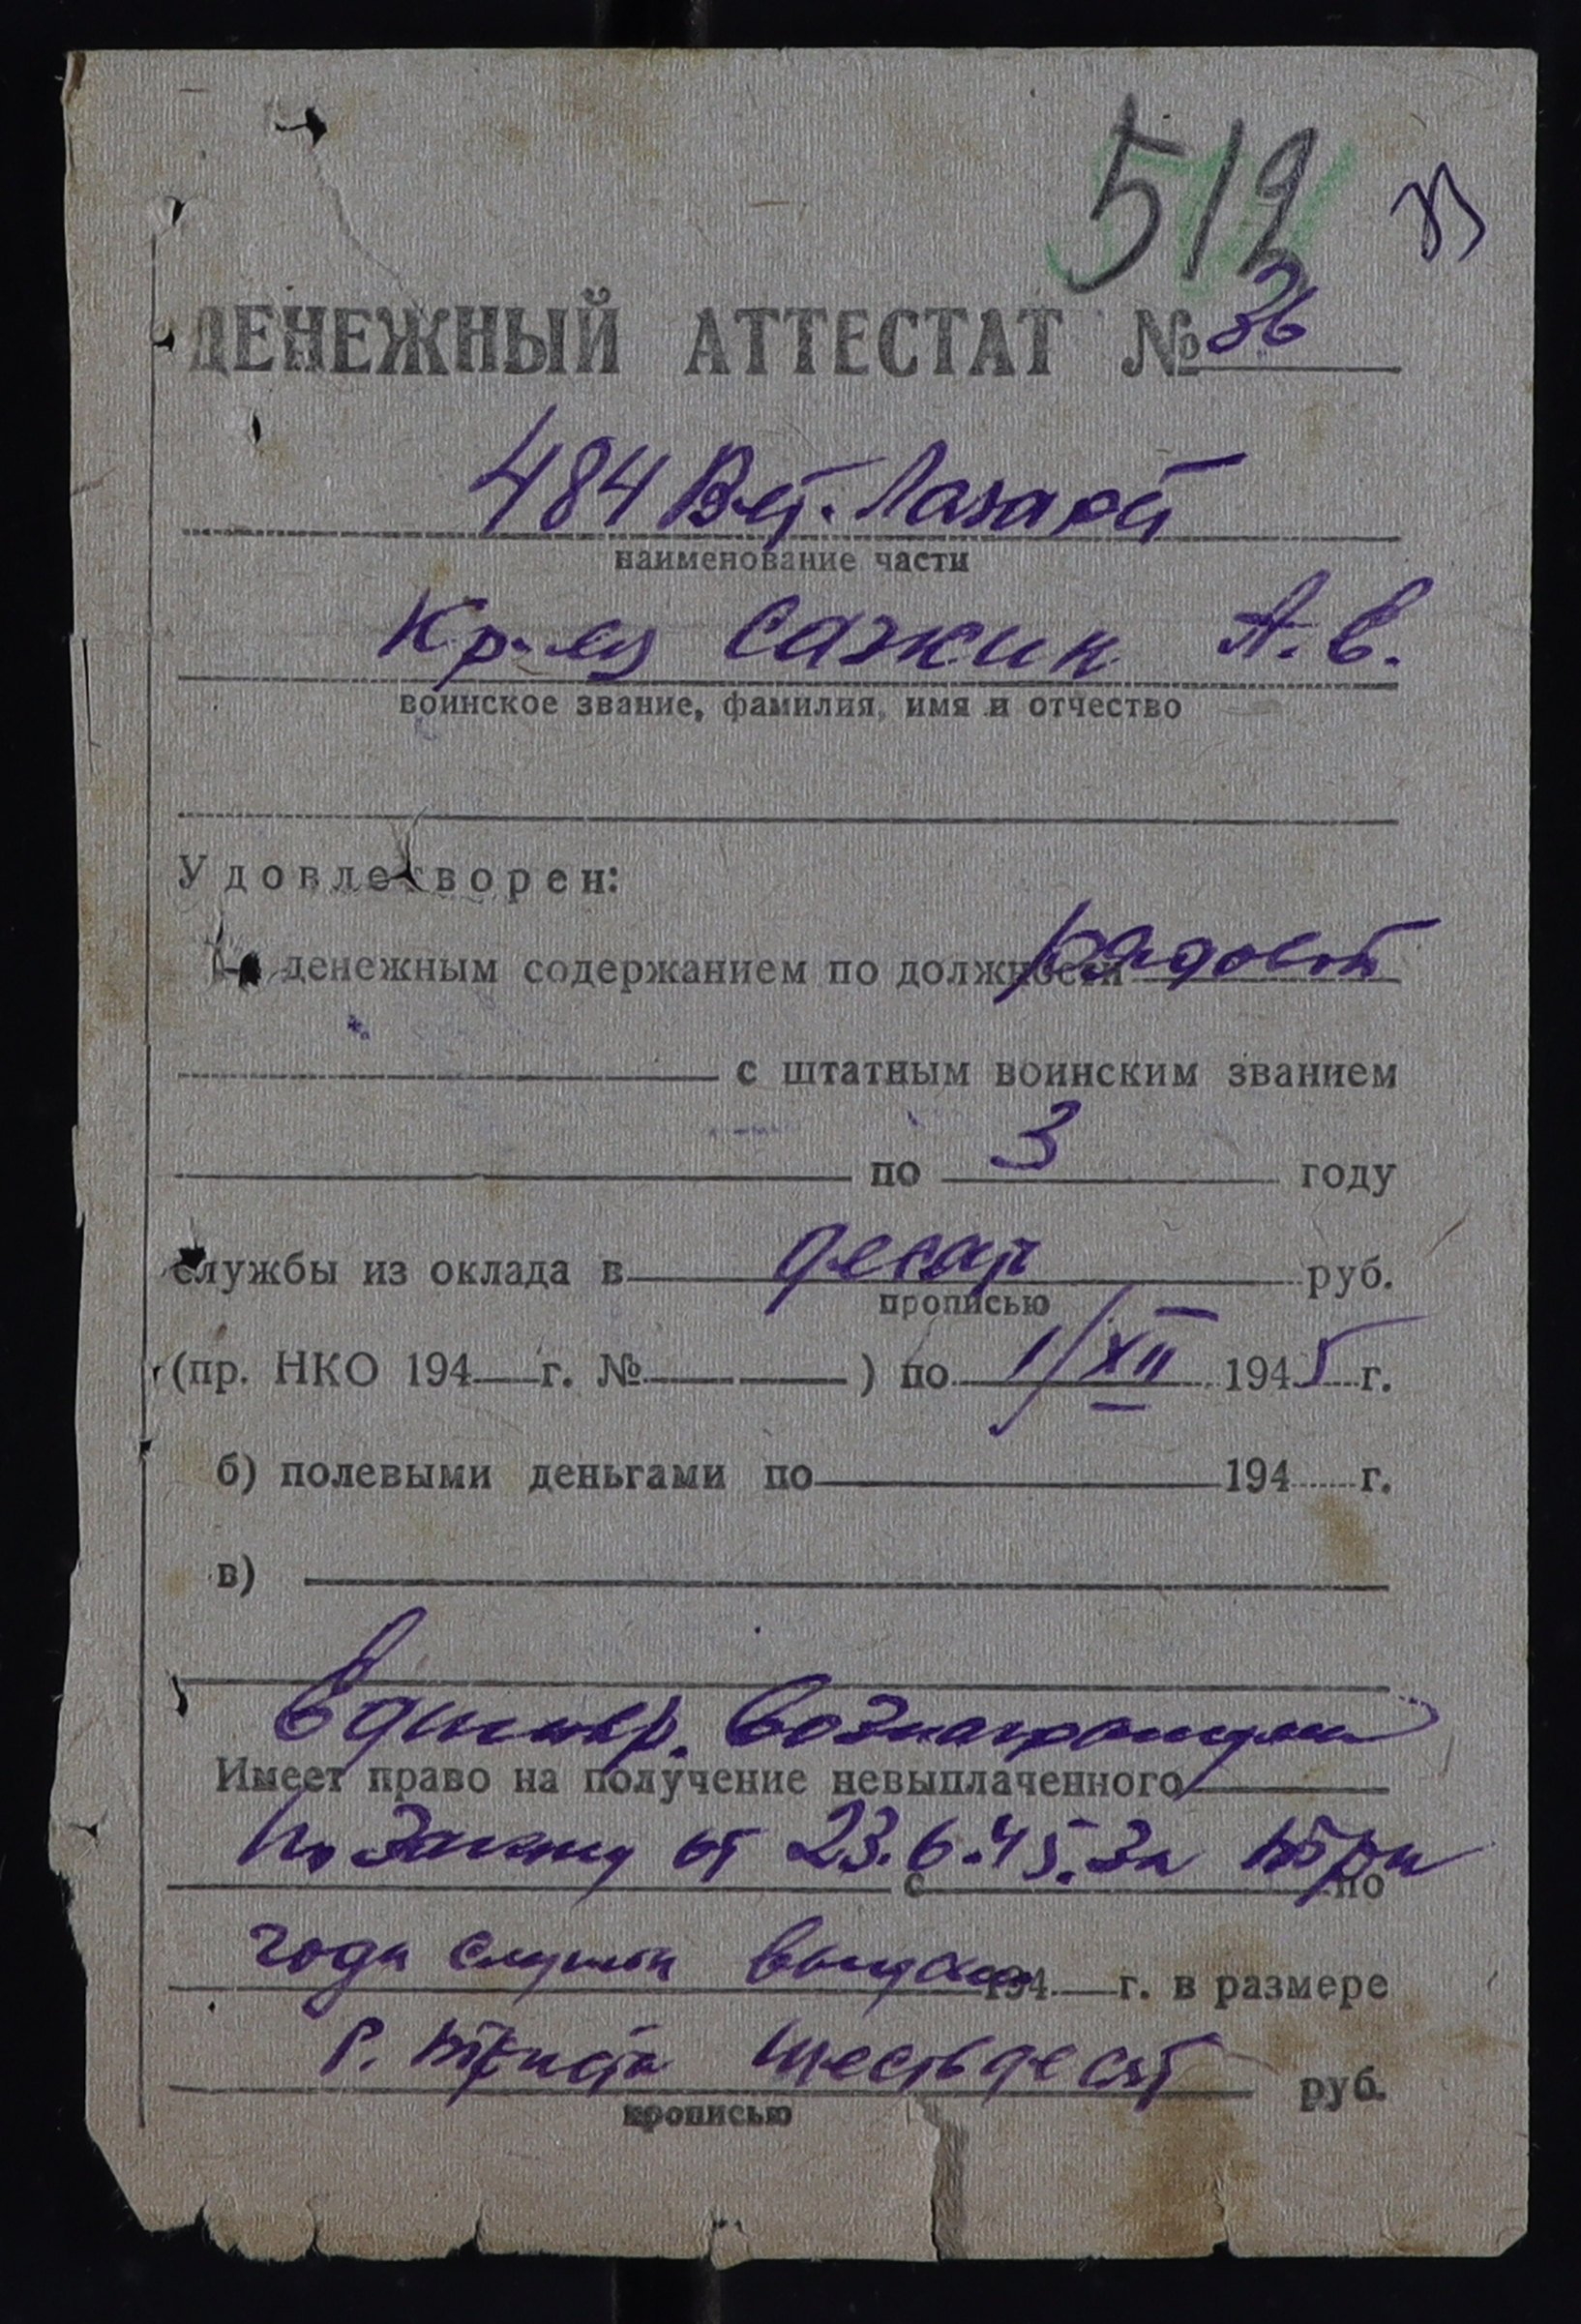 512
ДЕНЕЖНЫЙ АТТЕСТАТ № 36
484 Вет. Лазарет
наименование части
Кр-ец Сажин А. В.
воинское звание, фамилия, имя и отчество
Удовлетворен:
денежным содержанием по должности рядовой
с штатным воинским званием
по 3 году
службы из оклада в десят руб.
прописью
(пр. НКО 194 г. № ) по 1/XII 1945 г.
б) полевыми деньгами по 194 г.
в)
Единовр. вознагражден
Имеет право на получение невыплаченного
по Закону от 23.6.45. За три
с по
года службы 194 г. в размере
Р. триста шестьдесят руб.
прописью